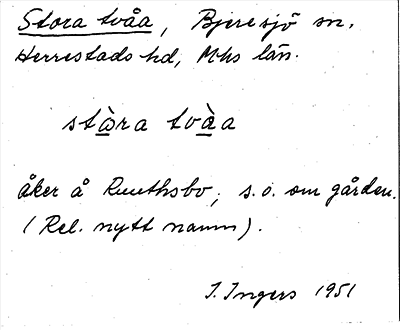 Stora tvåa, Bjeresjö sn.
Herrestads hd, Mhs län.
stὼra tvὰa
åker å Ruuthsbo, s.o. om gården.
(Rel. nytt namn).
I. Ingers 1951